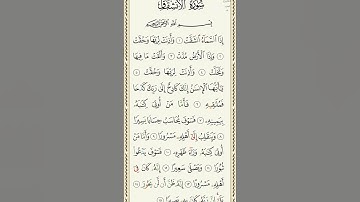 سُورَةُ الِانشِقَاقِ
بِسْمِ اللَّهِ الرَّحْمَٰنِ الرَّحِيمِ
إِذَا السَّمَاءُ انشَقَّتْ ١ وَأَذِنَتْ لِرَبِّهَا وَحُقَّتْ
٢ وَإِذَا الْأَرْضُ مُدَّتْ ٣ وَأَلْقَتْ مَا فِيهَا
وَتَخَلَّتْ ٤ وَأَذِنَتْ لِرَبِّهَا وَحُقَّتْ ٥
يَا أَيُّهَا الْإِنسَانُ إِنَّكَ كَادِحٌ إِلَىٰ رَبِّكَ كَدْحًا
فَمُلَاقِيهِ ٦ فَأَمَّا مَنْ أُوتِيَ كِتَابَهُ
بِيَمِينِهِ ٧ فَسَوْفَ يُحَاسَبُ حِسَابًا يَسِيرًا
٨ وَيَنقَلِبُ إِلَىٰ أَهْلِهِ مَسْرُورًا ٩ وَأَمَّا مَنْ
أُوتِيَ كِتَابَهُ وَرَاءَ ظَهْرِهِ ١٠ فَسَوْفَ يَدْعُو
ثُبُورًا ١١ وَيَصْلَىٰ سَعِيرًا ١٢ إِنَّهُ كَانَ فِي
أَهْلِهِ مَسْرُورًا ١٣ إِنَّهُ ظَنَّ أَن لَّن يَحُورَ ١٤
بَلَىٰ إِنَّ رَبَّهُ كَانَ بِهِ بَصِيرًا ١٥